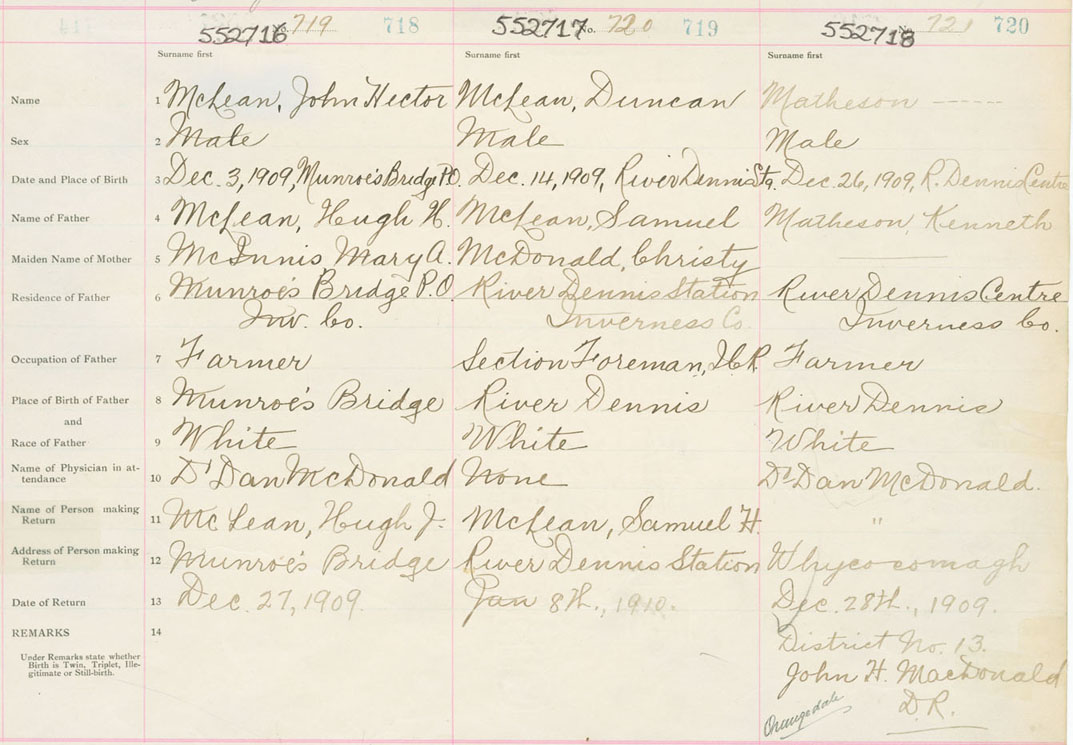 552716 No. 719 718 552717 No. 720 719 552718 No. 721 720
Surname first Surname first Surname first
Name 1 McLean, John Hector McLean, Duncan Matheson ------
Sex 2 Male Male Male
Date and Place of Birth 3 Dec. 3, 1909, Munroe's Bridge P.O. Dec. 14, 1909, River Dennis Sta. Dec. 26, 1909, R. Dennis Centre
Name of Father 4 McLean, Hugh H. McLean, Samuel Matheson, Kenneth
Maiden Name of Mother 5 McInnis Mary A. McDonald, Christy
Residence of Father 6 Munroe's Bridge P.O. River Dennis Station River Dennis Centre
Inv. Co. Inverness Co. Inverness Co.
Occupation of Father 7 Farmer Section Foreman, I.C.R Farmer
Place of Birth of Father 8 Munroe's Bridge River Dennis River Dennis
and
Race of Father 9 White White White
Name of Physician in at-
tendance 10 Dr Dan McDonald None Dr Dan McDonald.
Name of Person making
Return 11 McLean, Hugh J. McLean, Samuel H. "
Address of Person making
Return 12 Munroe's Bridge River Dennis Station Whycocomagh
Date of Return 13 Dec. 27, 1909. Jan 8th., 1910. Dec. 28th., 1909.
REMARKS 14 District No. 13.
Under Remarks state whether
Birth is Twin, Triplet, Ille-
gitimate or Still-birth.
John H. MacDonald
D.R.
Orangedale